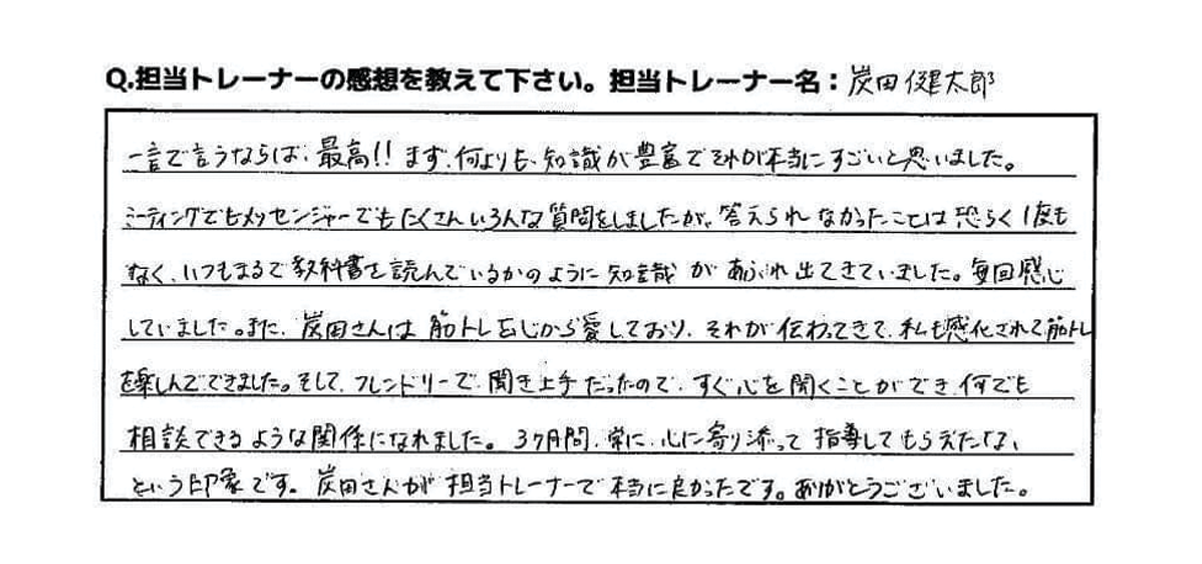 Q.担当トレーナーの感想を教えて下さい。担当トレーナー名：炭田健太郎
一言で言うならば、最高!! まず、何よりも、知識が豊富でそれが本当にすごいと思いました。
ミーティングでもメッセンジャーでもたくさんいろんな質問をしましたが、答えられなかったことは恐らく1度も
なく、いつもまるで教科書を読んでいるかのように知識があふれ出てきていました。毎回感心
していました。また、炭田さんは筋トレを心から愛しており、それが伝わってきて、私も感化されて筋トレ
を楽しんでできました。そして、フレンドリーで、聞き上手だったので、すぐ心を開くことができ、何でも
相談できるような関係になれました。3ヶ月間、常に、心に寄り添って指導してもらえたな、
という印象です。炭田さんが担当トレーナーで本当に良かったです。ありがとうございました。